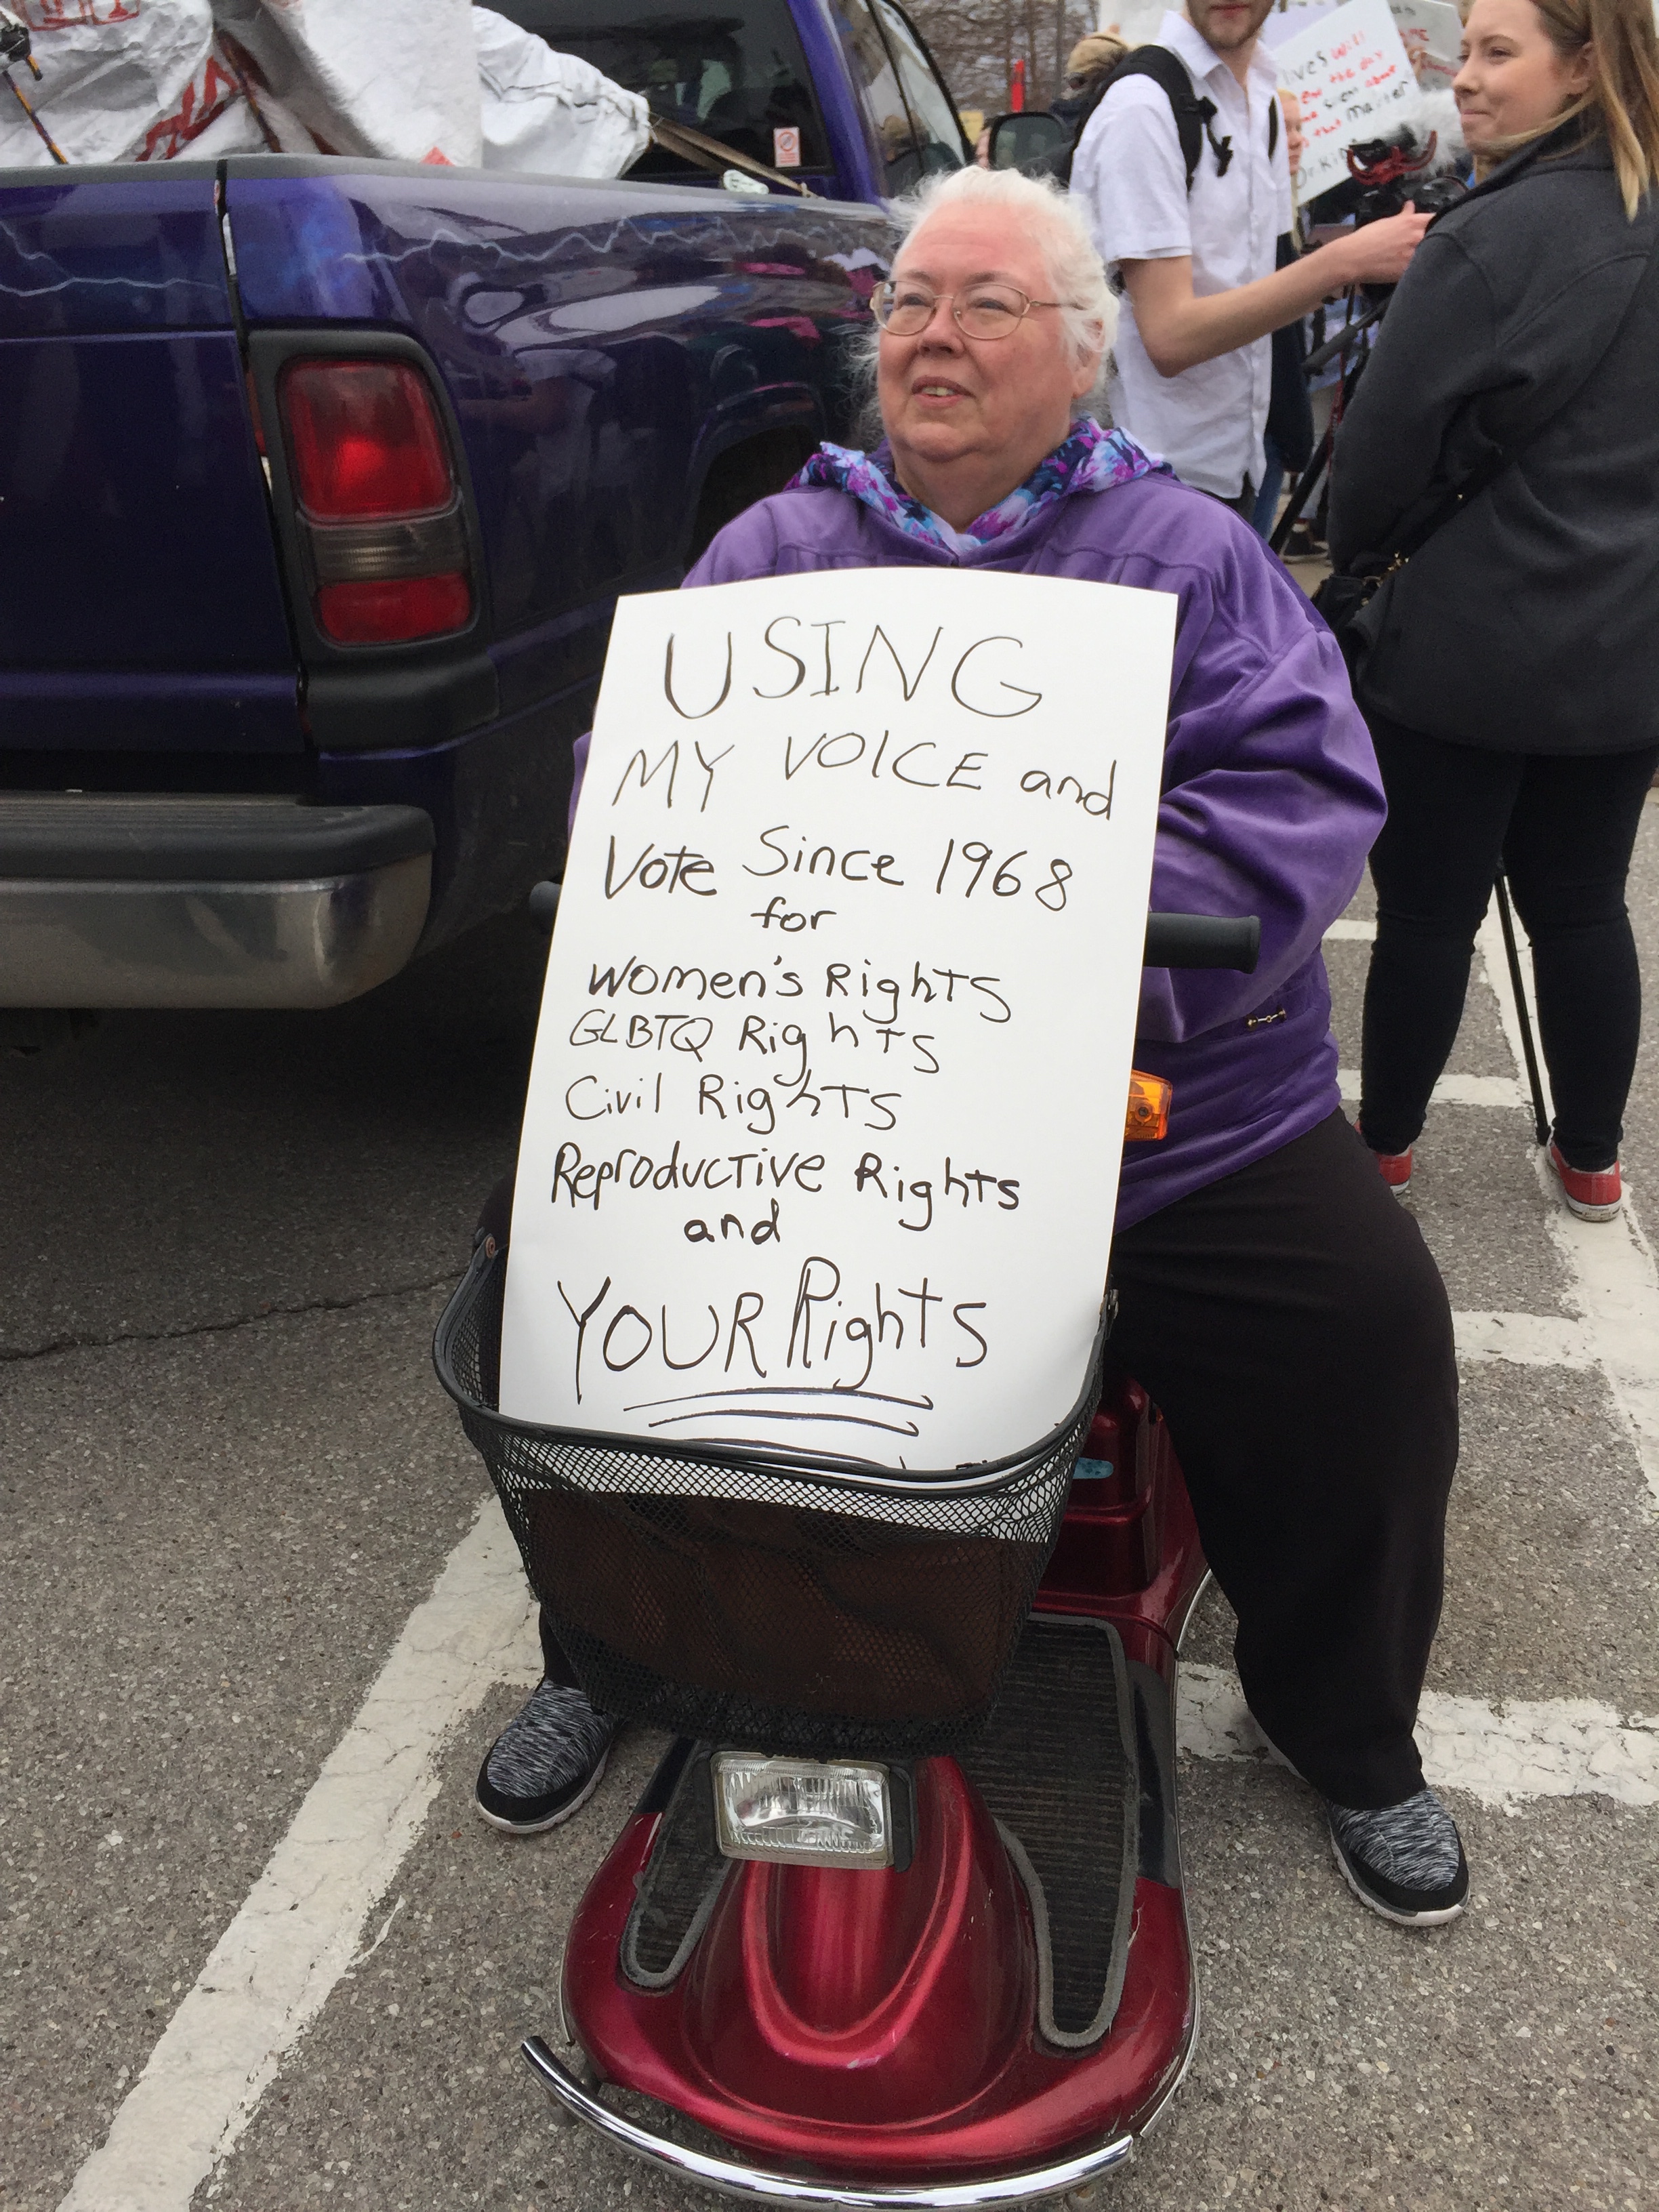 USING
MY VOICE and
Vote Since 1968
for
Women's Rights
GLBTQ Rights
Civil Rights
Reproductive Rights
and
YOUR Rights
lives will
the day
silent about
that matter